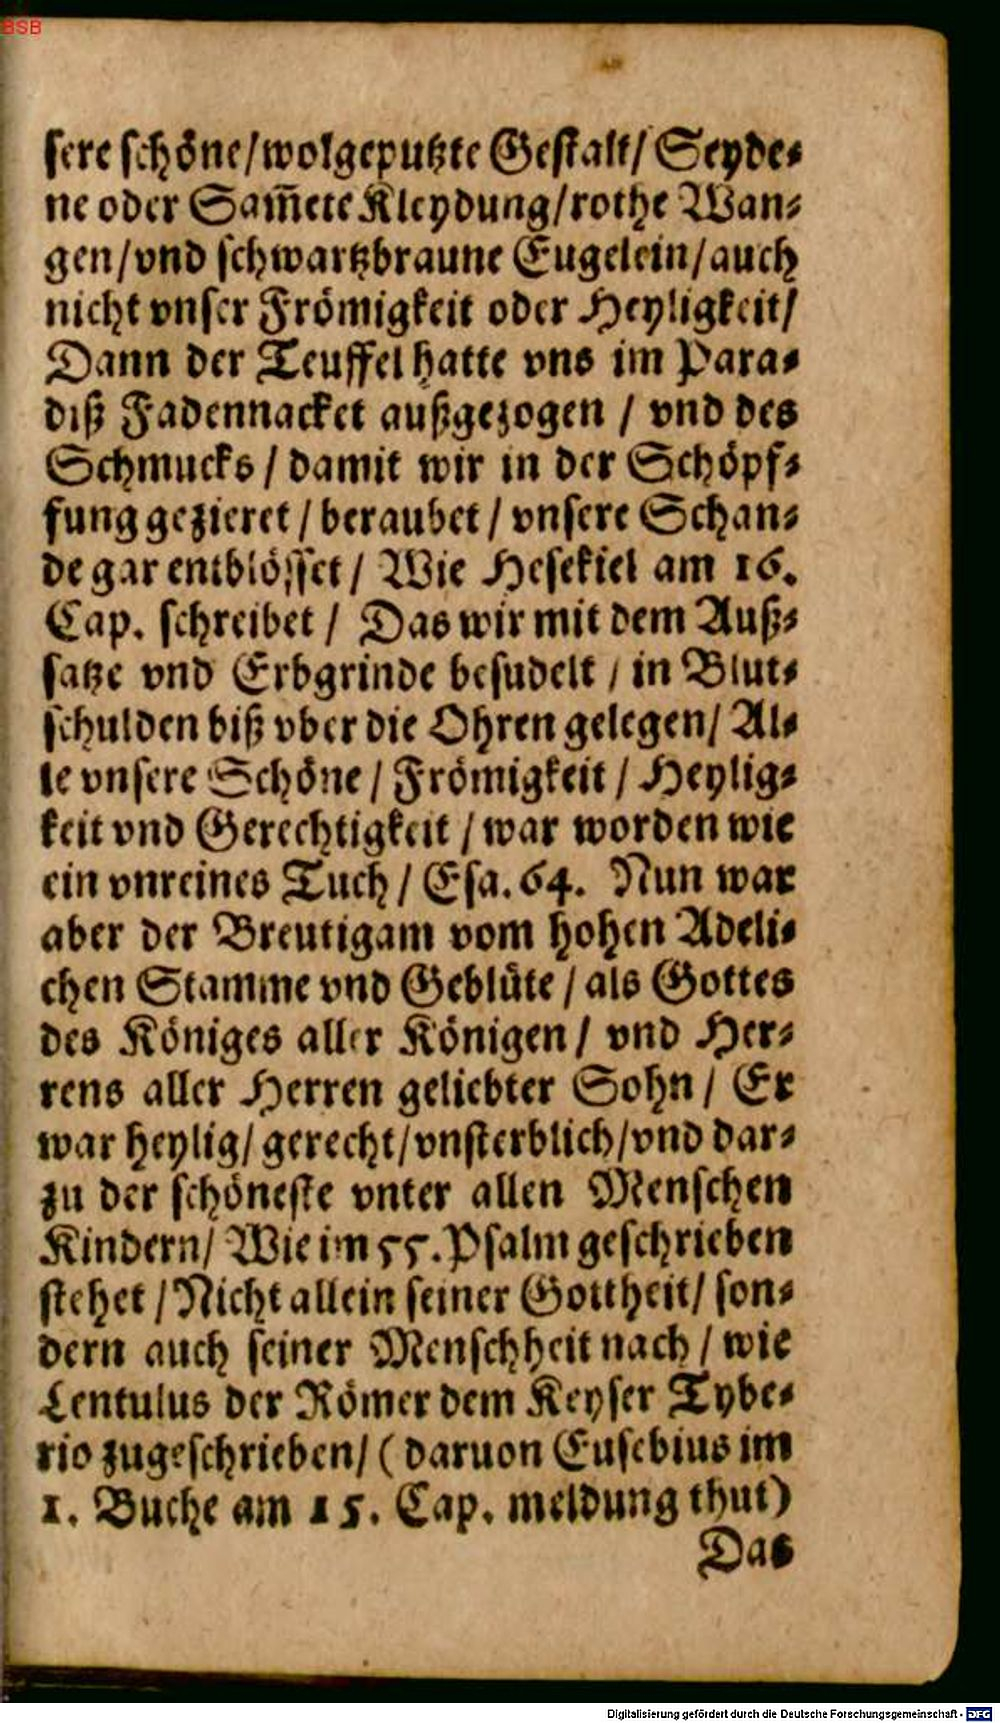 BSB
sere schöne/wolgeputzte Gestalt/ Seyde-
ne oder Sam̄ete Kleydung/rothe Wan-
gen/vnd schwartzbraune Eugelein/auch
nicht vnser Frömigkeit oder Heyligkeit/
Dann der Teuffel hatte vns im Para-
diß Fadennacket außgezogen / vnd des
Schmucks / damit wir in der Schöpf-
fung gezieret / beraubet / vnsere Schan-
de gar entblösset / Wie Hesekiel am 16.
Cap. schreibet / Das wir mit dem Auß-
satze vnd Erbgrinde besudelt / in Blut-
schulden biß vber die Ohren gelegen/ Al-
le vnsere Schöne / Frömigkeit / Heylig-
keit vnd Gerechtigkeit / war worden wie
ein vnreines Tuch / Esa. 64. Nun war
aber der Breutigam vom hohen Adeli-
chen Stamme vnd Geblüte / als Gottes
des Königes aller Königen / vnd Her-
rens aller Herren geliebter Sohn / Er
war heylig/ gerecht/vnsterblich/vnd dar-
zu der schöneste vnter allen Menschen
Kindern/ Wie im 55. Psalm geschrieben
stehet / Nicht allein seiner Gottheit/ son-
dern auch seiner Menschheit nach / wie
Lentulus der Römer dem Keyser Tybe-
rio zugeschrieben/ ( daruon Eusebius im
1. Buche am 15. Cap. meldung thut)
Das
Digitalisierung gefördert durch die Deutsche Forschungsgemeinschaft - DFG